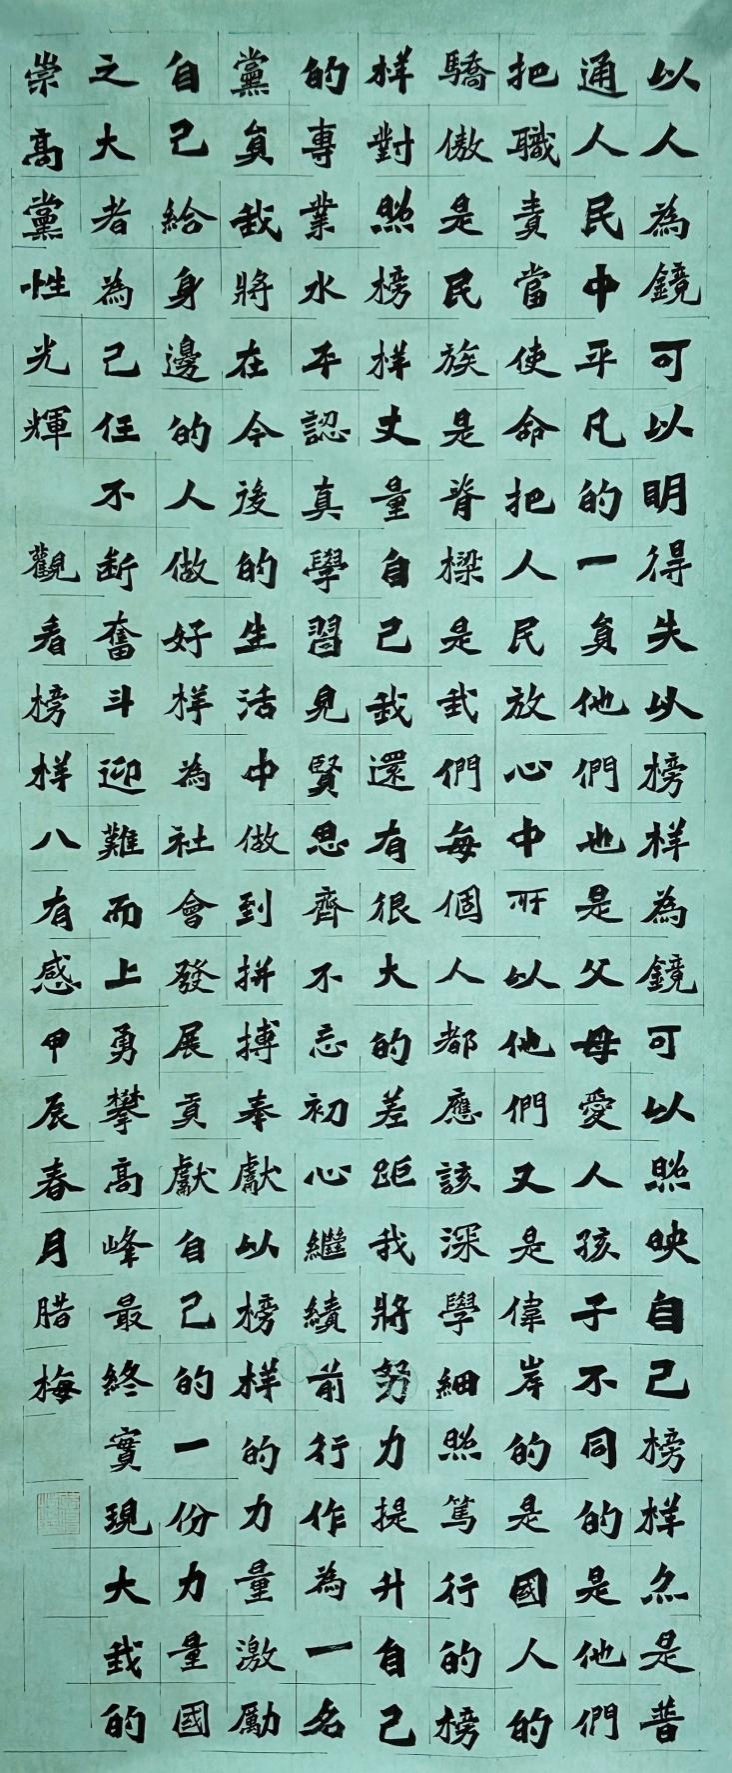 以人為鏡可以明得失以榜样為鏡可以照映自己榜样亦是普
通人民中平凡的一員他們也是父母愛人孩子不同的是他們
把職責當使命把人民放心中所以他們又是偉岸的是國人的
驕傲是民族是脊樑是我們每個人都應該深學細照篤行的榜
样對照榜样丈量自己我還有很大的差距我將努力提升自己
的專業水平認真學習見賢思齊不忘初心繼續前行作為一名
黨員我將在今後的生活中做到拼搏奉獻以榜样的力量激勵
自己給身邊的人做好样為社會發展貢獻自己的一份力量國
之大者為己任不断奮斗迎難而上勇攀高峰最終實現大我的
崇高黨性光輝 觀看榜样八有感甲辰春月腊梅